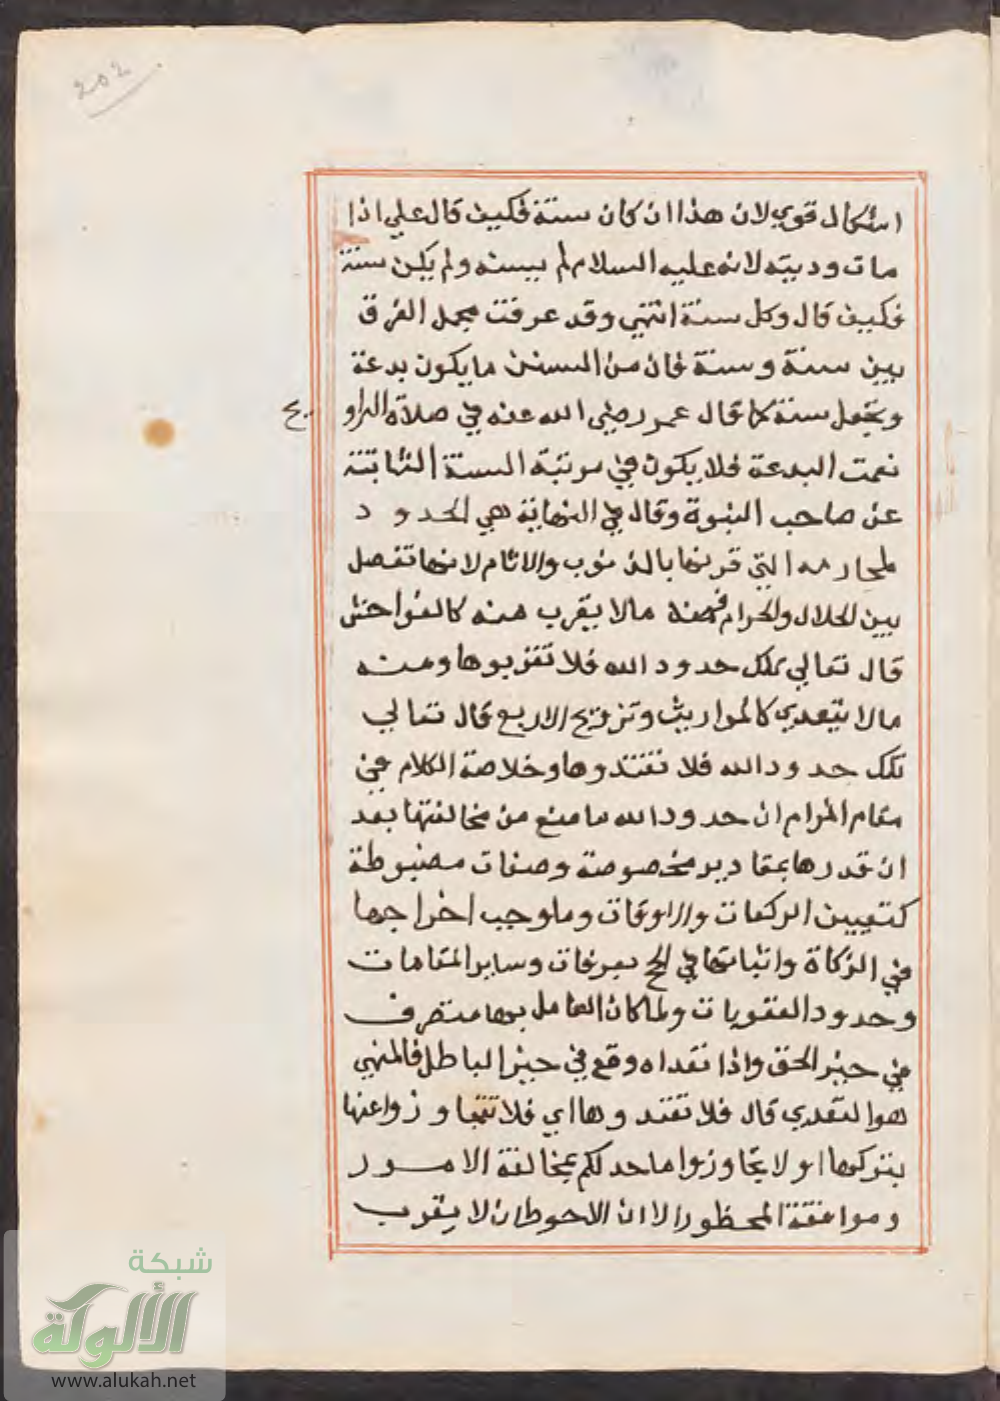 202
اشكال قوي لان هذا ان كان سنة فكيف قال علي اذا
مات وديته لانه عليه السلام لم يسنه ولم يكن سنة
فكيف قال وكل سنة انتهي وقد عرفت مجمل الفرق
بين سنة وسنة فان من السنن ما يكون بدعة
ويجعل سنة كما قال عمر رضي الله عنه في صلاة التراو
يح
نعمت البدعة فلا يكون في مرتبة السنة الثابتة
عن صاحب النبوة وقال في النهاية هي الحدود
لمحارمه التي قرنها بالذنوب والاثام لانها تفصل
بين الحلال والحرام فمنه مالا يقرب منه كالفواحش
قال تعالي تلك حدود الله فلا تقربوها ومنه
مالا يتعدي كالمواريث وتزويج الاربع قال تعالي
تلك حدود الله فلا تعتدوها وخلاصة الكلام في
مقام المرام ان حدود الله ما منع من مخالفتها بعد
ان قدرها بمقادير مخصوصة وصفات مضبوطة
كتعيين الركعات والاوقات وما وجب اخراجها
في الزكاة واثباتها في الحج بعرفات وساير المقامات
وحدود العقوبات ولما كان العامل بها متصرف
في حيز الحق واذا تعداه وقع في حيز الباطل فالمنهي
هو التعدي قال فلا تعتدوها اي فلا تتجاوزوا عنها
بتركها او لا يتجاوزوا ما حد لكم بمخالفة الامور
وموافقة المحظور الا ان الاحوط ان لا يقرب
شبكة
الألوكة
www.alukah.net